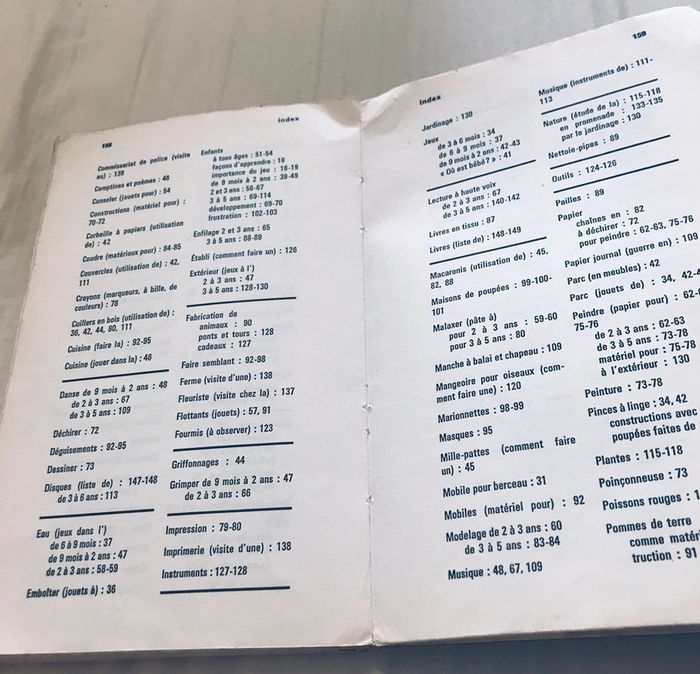 158
Index
Commissariat de police (visite
au) : 139
Comptines et poèmes : 48
Consoler (jouets pour) : 54
Constructions (matériel pour) :
70-72
Corbeille à papiers (utilisation
de) : 42
Coudre (matériaux pour) : 84-85
Couvercles (utilisation de) : 42,
111
Crayons (marqueurs, à bille, de
couleurs) : 78
Cuillers en bois (utilisation de) :
36, 42, 44, 80, 111
Cuisine (faire la) : 92-95
Cuisine (jouer dans la) : 46
Danse de 9 mois à 2 ans : 48
de 2 à 3 ans : 67
de 3 à 5 ans : 109
Déchirer : 72
Déguisements : 92-95
Dessiner : 73
Disques (liste de) : 147-148
de 3 à 6 ans : 113
Eau (jeux dans l')
de 6 à 9 mois : 37
de 9 mois à 2 ans : 47
de 2 à 3 ans : 58-59
Emboîter (jouets à) : 36
Enfants
à tous âges : 51-54
façons d'apprendre : 18
importance du jeu : 16-19
de 9 mois à 2 ans : 39-49
2 et 3 ans : 56-67
3 à 5 ans : 69-114
développement : 69-70
frustration : 102-103
Enfilage 2 et 3 ans : 65
3 à 5 ans : 88-89
Établi (comment faire un) : 126
Extérieur (jeux à l')
2 à 3 ans : 47
3 à 5 ans : 128-130
Fabrication de
animaux : 90
ponts et tours : 128
cadeaux : 127
Faire semblant : 92-98
Ferme (visite d'une) : 138
Fleuriste (visite chez la) : 137
Flottants (jouets) : 57, 91
Fourmis (à observer) : 123
Griffonnages : 44
Grimper de 9 mois à 2 ans : 47
de 2 à 3 ans : 66
Impression : 79-80
Imprimerie (visite d'une) : 138
Instruments : 127-128
Index
159
Jardinage : 130
Jeux
de 3 à 6 mois : 34
de 6 à 9 mois : 37
de 9 mois à 2 ans : 42-43
« Où est bébé? » : 41
Lecture à haute voix
de 2 à 3 ans : 67
de 3 à 5 ans : 140-142
Livres en tissu : 87
Livres (liste de) : 148-149
Macaronis (utilisation de) : 45,
82, 88
Maisons de poupées : 99-100-
101
Malaxer (pâte à)
pour 2 à 3 ans : 59-60
pour 3 à 5 ans : 80
Manche à balai et chapeau : 109
Mangeoire pour oiseaux (com-
ment faire une) : 120
Marionnettes : 98-99
Masques : 95
Mille-pattes (comment faire
un) : 45
Mobile pour berceau : 31
Mobiles (matériel pour) : 92
Modelage de 2 à 3 ans : 60
de 3 à 5 ans : 83-84
Musique : 48, 67, 109
Musique (instruments de) : 111-
113
Nature (étude de la) : 115-118
en promenade : 133-135
par le jardinage : 130
Nettoie-pipes : 89
Outils : 124-126
Pailles : 89
Papier
chaînes en : 82
à déchirer : 72
pour peindre : 62-63, 75-76
Papier journal (guerre en) : 109
Parc (en meubles) : 42
Parc (jouets de) : 34, 42-4
Peindre (papier pour) : 62-6
75-76
de 2 à 3 ans : 62-63
de 3 à 5 ans : 73-78
matériel pour : 75-78
à l'extérieur : 130
Peinture : 73-78
Pinces à linge : 34, 42
constructions avec
poupées faites de
Plantes : 115-118
Poinçonneuse : 73
Poissons rouges : 1
Pommes de terre
comme matér
truction : 91